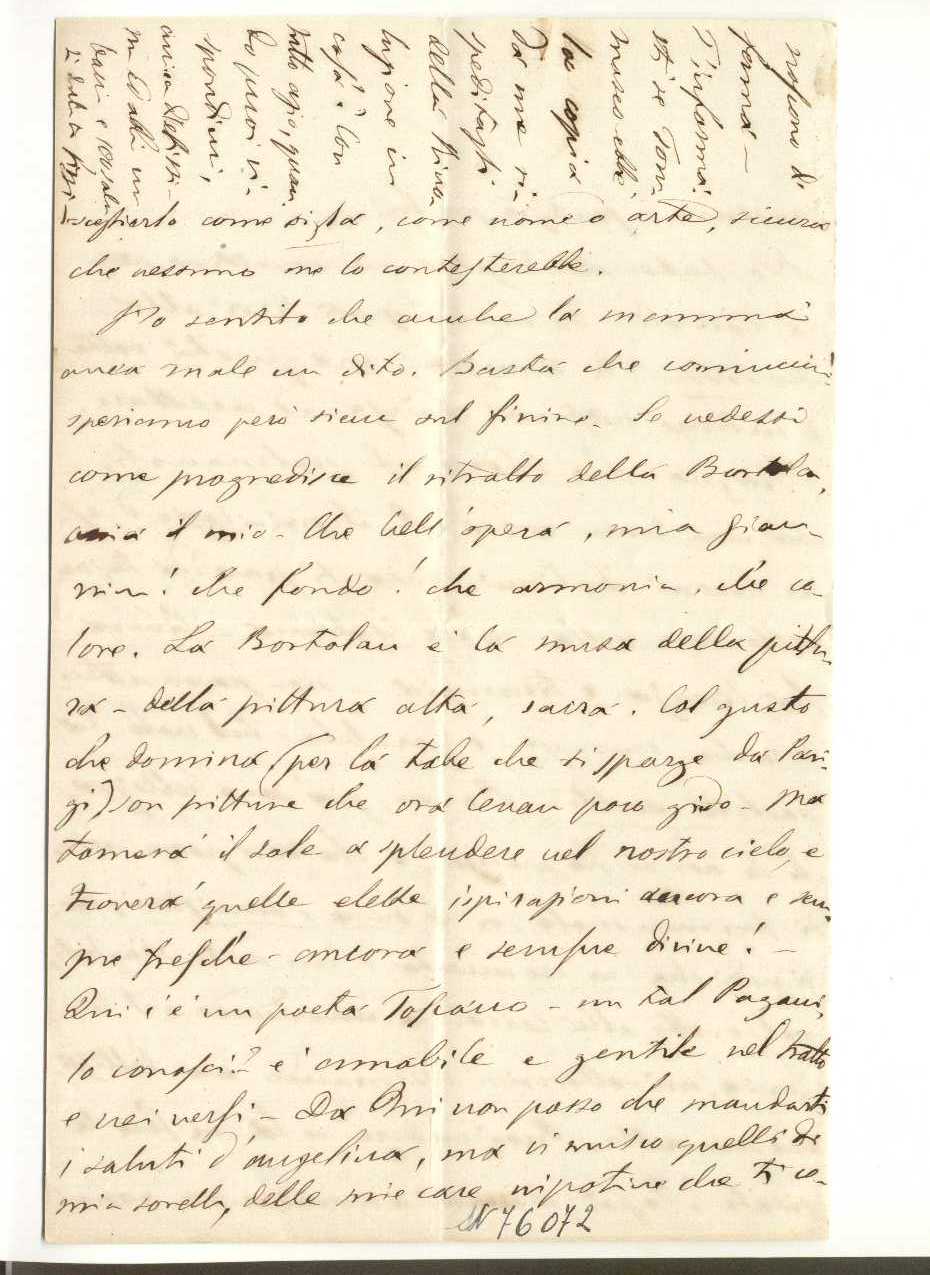 scieglierlo come sigla, come nome d'arte, sicura
che nessuno me lo contesterebbe.
Ho sentito che anche la mamma
avea male un dito. Basta che cominci:
speriamo però sieu sul finire. Se vedessi
come progredisce il ritratto della Bortolan,
anzi il mio - Che bell'opera, mia Gian-
nina! che fondo! che armonia, che ca-
lore. La Bortolan è la musa della pittu-
ra - della pittura alta, sacra. Col gusto
che domina (per la tabe che si sparge da Pari-
gi) son pitture che ora levan poco grido - Ma
tornerà il sole a splendere nel nostro cielo, e
troverà quelle elette ispirazioni ancora e sem-
pre fresche - ancora e sempre divine! -
Qui c'è un poeta Toscano - un tal Pagani,
lo conosci? è amabile e gentile nel tratto
e nei versi - Da Qui non posso che mandarti
i saluti d'angelina, ma ci unisco quelli di
mia sorella, delle mie care nipotine che ti co-
N 76072
nessuno di
forma -
T'informa
sti se Tom
maseo ebbe
la copia
da me ri-
speditagli
della Rivo-
luzione in
casa? Con
tutto agio, quan
do puoi ri-
spondimi,
amica Dilettissi
ma ed abbi un
bacio e consola